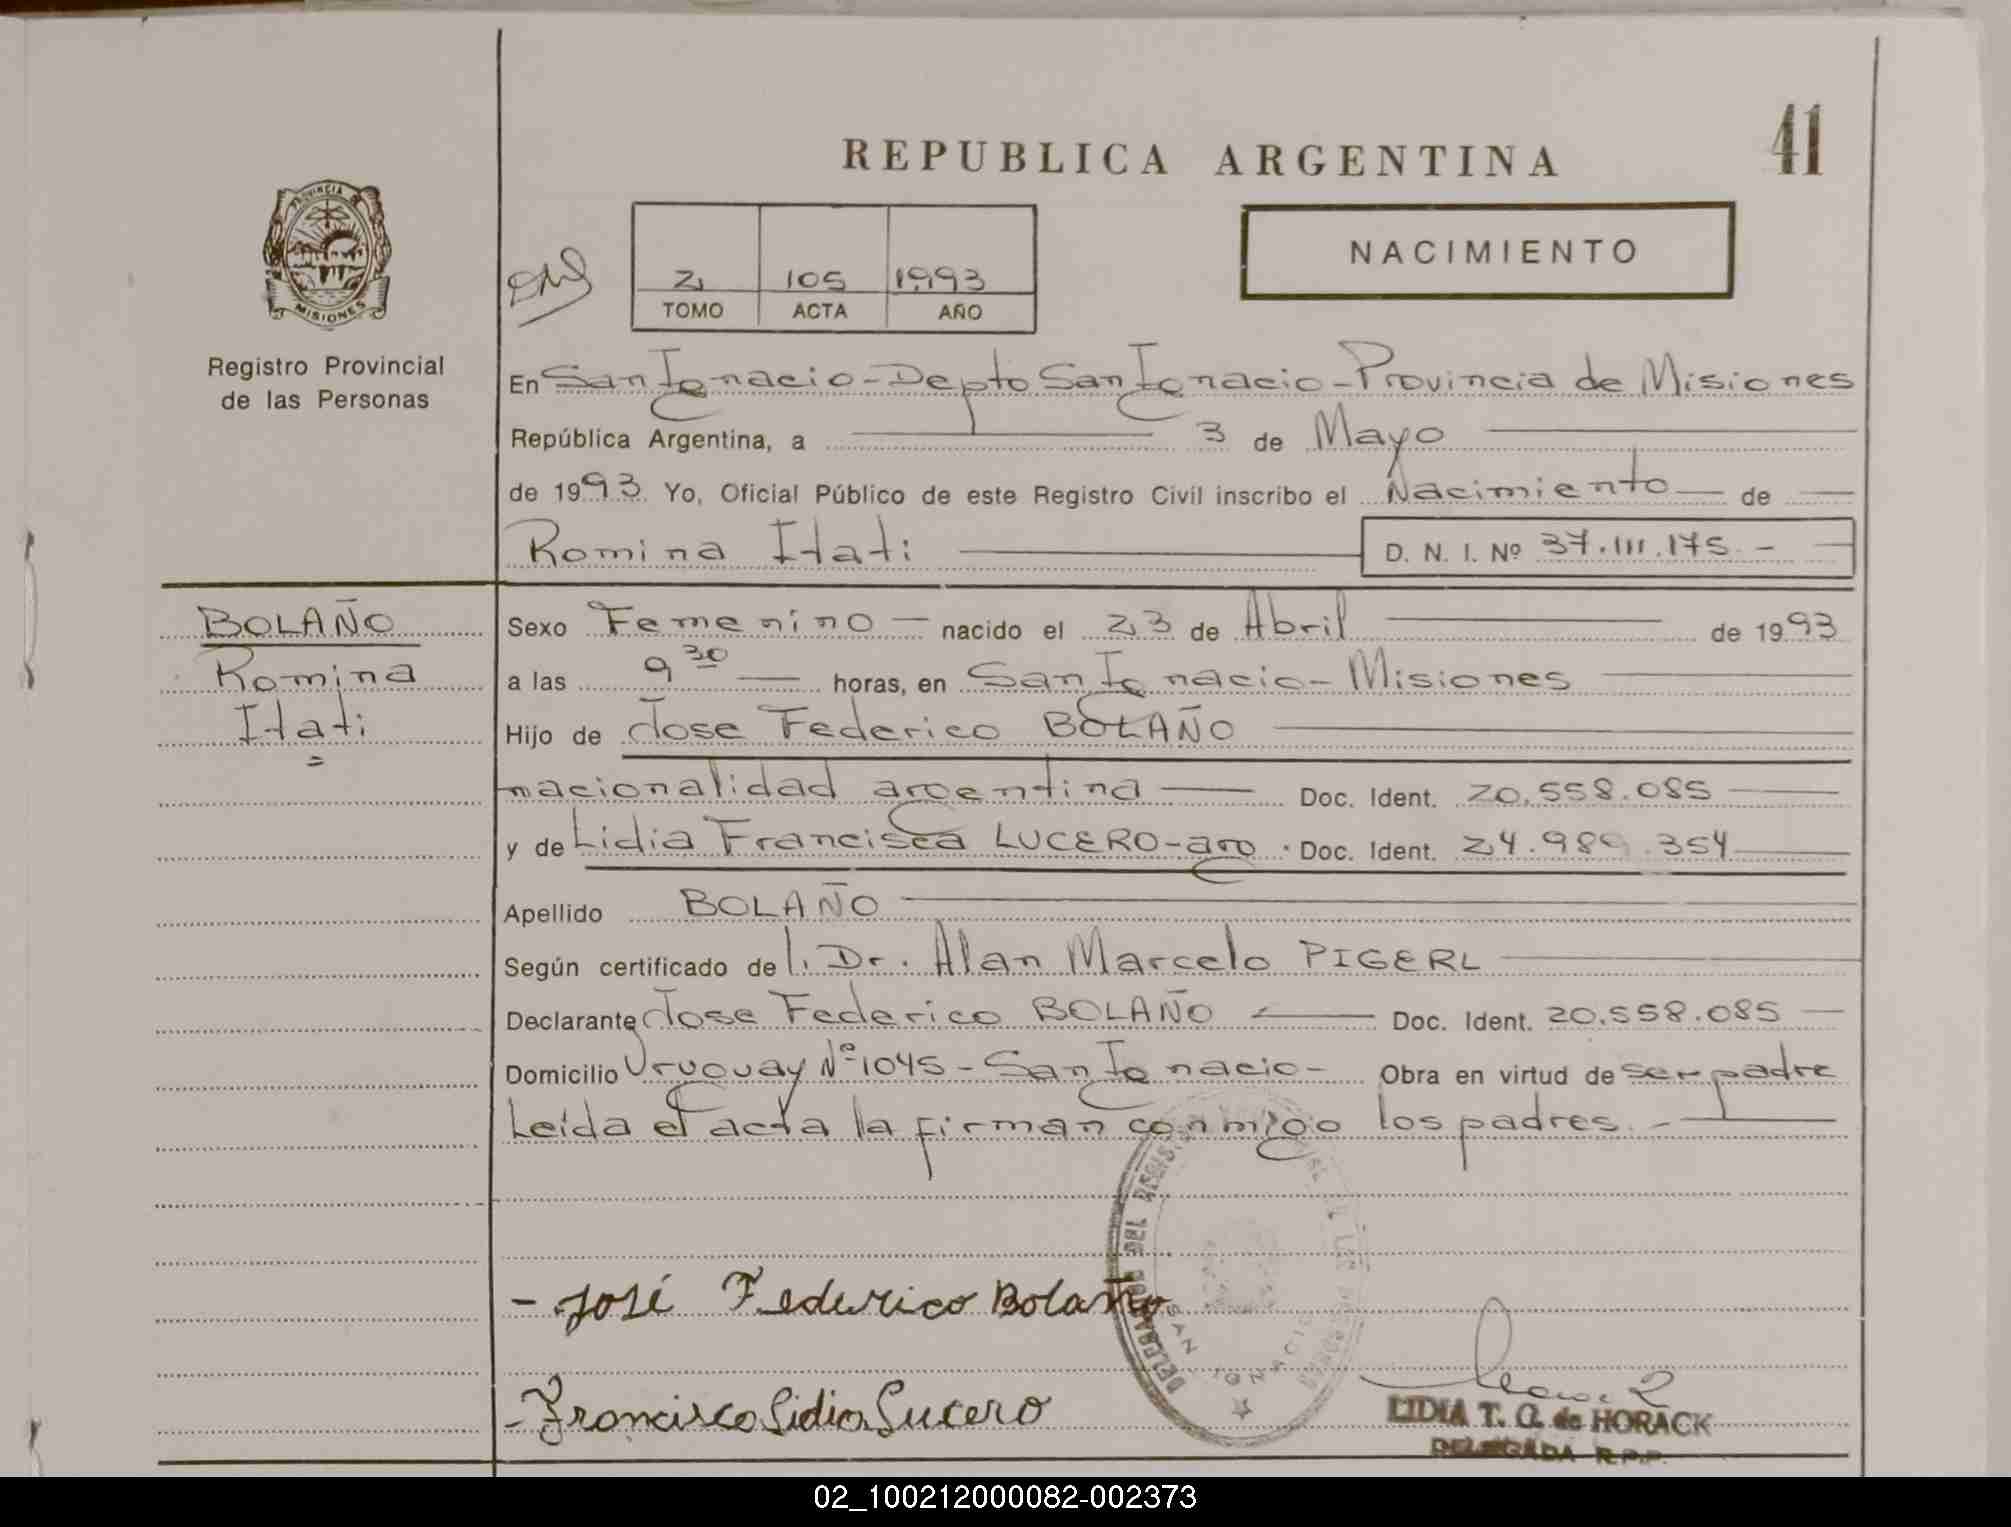 41
REPUBLICA ARGENTINA
PROVINCIA
MISIONES
2 105 1993
TOMO ACTA AÑO
NACIMIENTO
Registro Provincial
de las Personas
En San Ignacio - Depto San Ignacio - Provincia de Misiones
República Argentina, a 3 de Mayo
de 1993. Yo, Oficial Público de este Registro Civil inscribo el Nacimiento de
Romina Itati D. N. I. Nº 37.111.175.-
BOLAÑO
Romina
Itati
Sexo Femenino nacido el 23 de Abril de 1993
a las 9 30 horas, en San Ignacio - Misiones
Hijo de Jose Federico BOLAÑO
nacionalidad argentina Doc. Ident. 20.558.085
y de Lidia Francisca LUCERO - arg. Doc. Ident. 24.989.354
Apellido BOLAÑO
Según certificado del. Dr. Alan Marcelo PIGERL
Declarante Jose Federico BOLAÑO Doc. Ident. 20.558.085
Domicilio Uruguay Nº 1045 - San Ignacio - Obra en virtud de ser padre
Leída el acta la firman conmigo los padres.-
- José Federico Bolaño
- Francisca Lidia Lucero
SAN IGNACIO
LIDIA T. G. de HORACK
DELEGADA R.P.P.
02_100212000082-002373